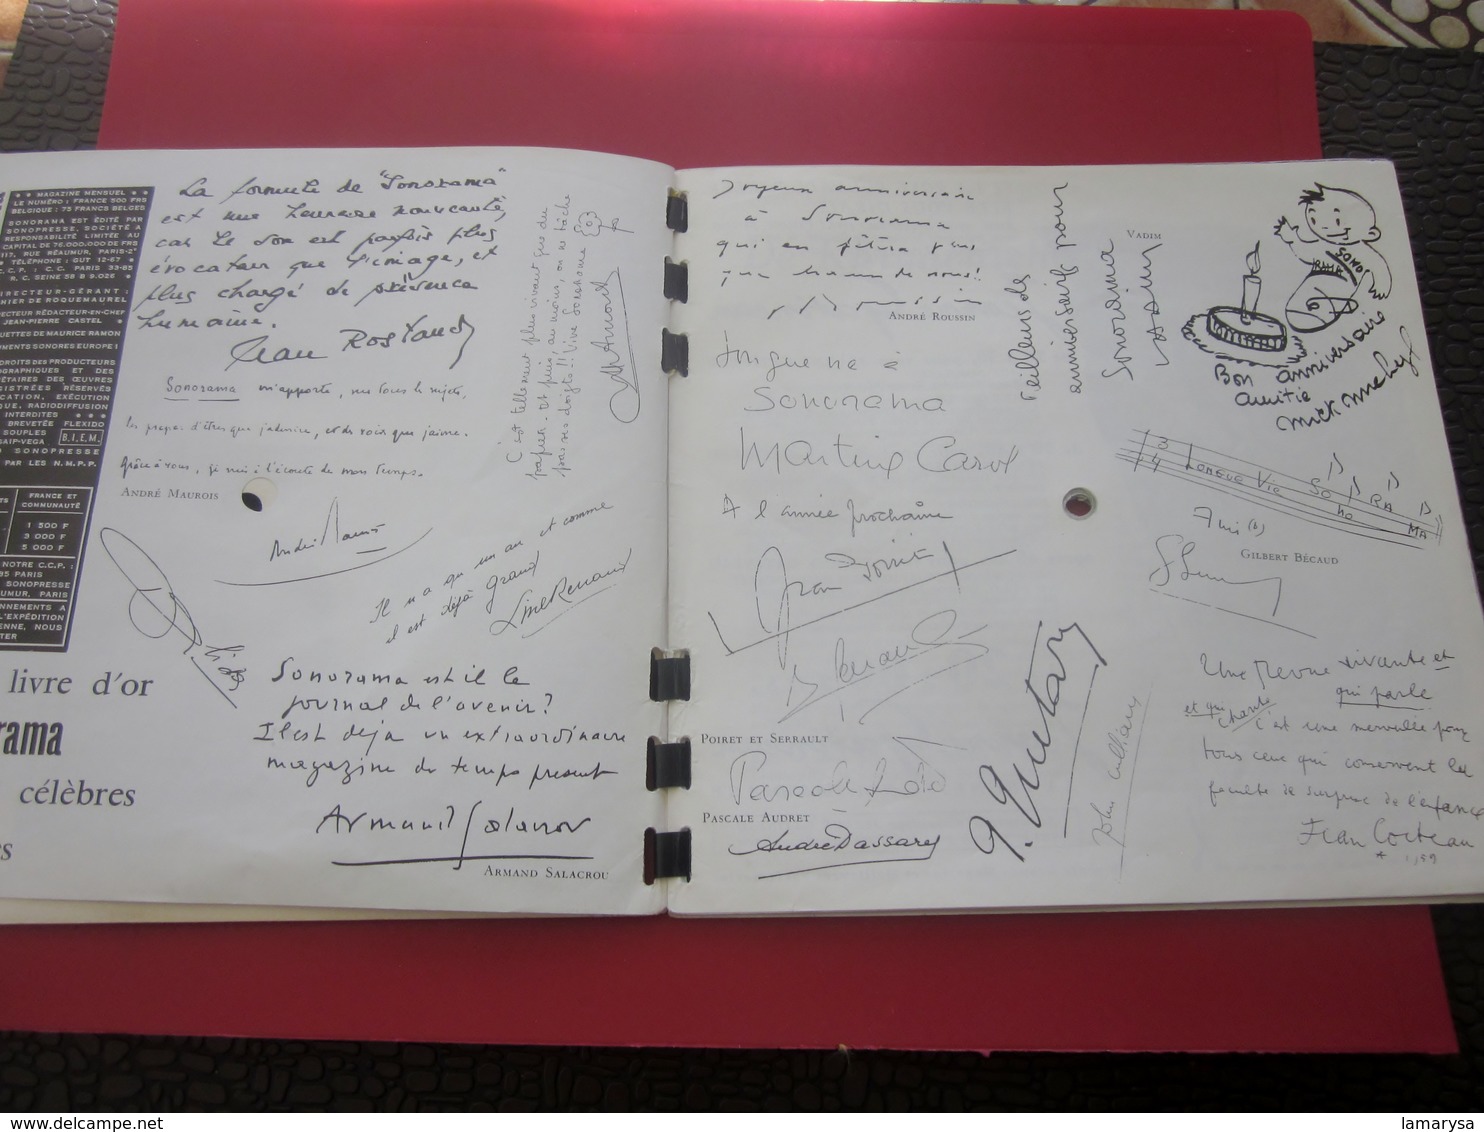 MAGAZINE MENSUEL
LE NUMÉRO : FRANCE 500 FRS
BELGIQUE : 75 FRANCS BELGES
SONORAMA EST ÉDITÉ PAR
SONOPRESSE, SOCIÉTÉ A
RESPONSABILITÉ LIMITÉE AU
CAPITAL DE 76.000.000 DE FRS
117, RUE RÉAUMUR, PARIS-2e
TÉLÉPHONE : GUT 12-67
C.C.P. : C.C. PARIS 33-85
R. C. SEINE 58 B 9.026
DIRECTEUR-GÉRANT :
HIER DE ROQUEMAUREL
ECTEUR RÉDACTEUR-EN-CHEF
JEAN-PIERRE CASTEL
UETTES DE MAURICE RAMON
MENTS SONORES EUROPE 1
DROITS DES PRODUCTEURS
OGRAPHIQUES ET DES
ÉTAIRES DES ŒUVRES
ISTRÉES RÉSERVÉS
CATION, EXÉCUTION
QUE, RADIODIFFUSION
INTERDITES
BREVETÉE FLEXIDO
SOUPLES B.I.E.M.
SAIP-VEGA
SONOPRESSE
PAR LES N.M.P.P.
FRANCE ET
COMMUNAUTÉ
1 500 F
3 000 F
5 000 F
NOTRE C.C.P. :
85 PARIS
SONOPRESSE
UMUR, PARIS
NNEMENTS A
L'EXPÉDITION
ENNE, NOUS
TER
livre d'or
rama
célèbres
es
La formule de "Sonorama"
est une heureuse nouveauté,
car le son est parfois plus
évocateur que l'image, et
plus chargé de présence
humaine.
Jean Rostand
Sonorama m'apporte, sur tous les sujets,
les propos d'êtres que j'admire, et des voix que j'aime.
Grâce à vous, je suis à l'écoute de mon temps.
ANDRÉ MAUROIS
André Maurois
C'est tellement plus vivant que du
papier. Et puis, au moins, on ne tâche
pas ses doigts!! Vive Sonorama
Il n'a qu'un an et comme
il est déjà grand
Line Renaud
Sonorama est-il le
journal de l'avenir?
Il est déjà un extraordinaire
magazine du temps présent
Armand Salacrou
ARMAND SALACROU
Joyeux anniversaire
à Sonorama
qui en fêtera plus
que beaucoup de nous!!
Roussin
ANDRÉ ROUSSIN
Longue vie à
Sonorama
Martine Carol
A l'année prochaine
Jean Poiret
POIRET ET SERRAULT
PASCALE AUDRET
André Dassary
meilleurs vœux
anniversaire pour
Sonorama
VADIM
Vadim
SONO
RAMA
Bon anniversaire
amitié
Mick Micheyl
3
4 LONGUE VIE SO NO RA MA
GILBERT BÉCAUD
Une revue vivante et
qui parle
et qui chante
C'est une merveille pour
tous ceux qui conservent la
faculté de surprise de l'enfance
Jean Cocteau
* 1959
lamarysa